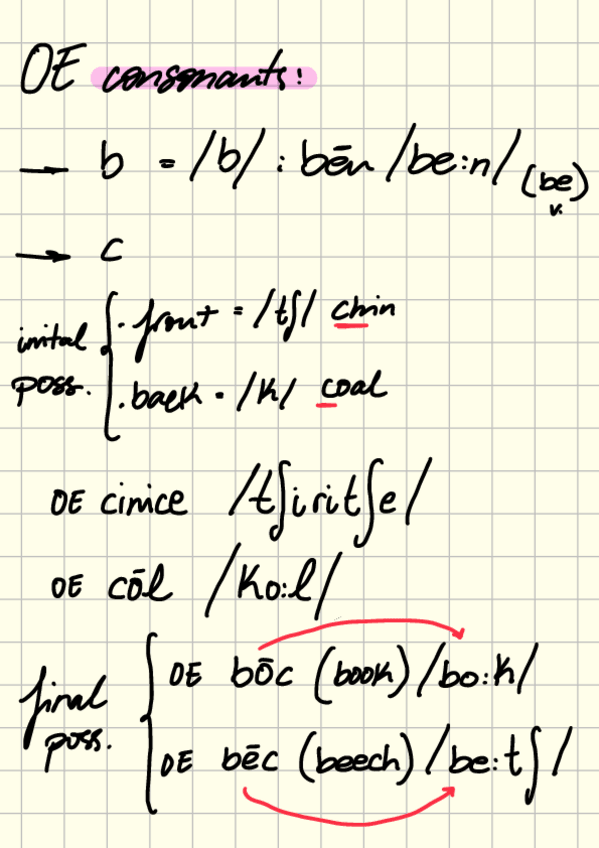 OE consonants:
→ b = /b/ : bēn /be:n/ (be)
v.
→ c
inital poss.
· front = /tʃ/ chin
· back = /k/ coal
OE cirice /tʃiritʃe/
OE cōl /ko:l/
final poss.
OE bōc (book) /bo:k/
OE bēc (beech) /be:tʃ/